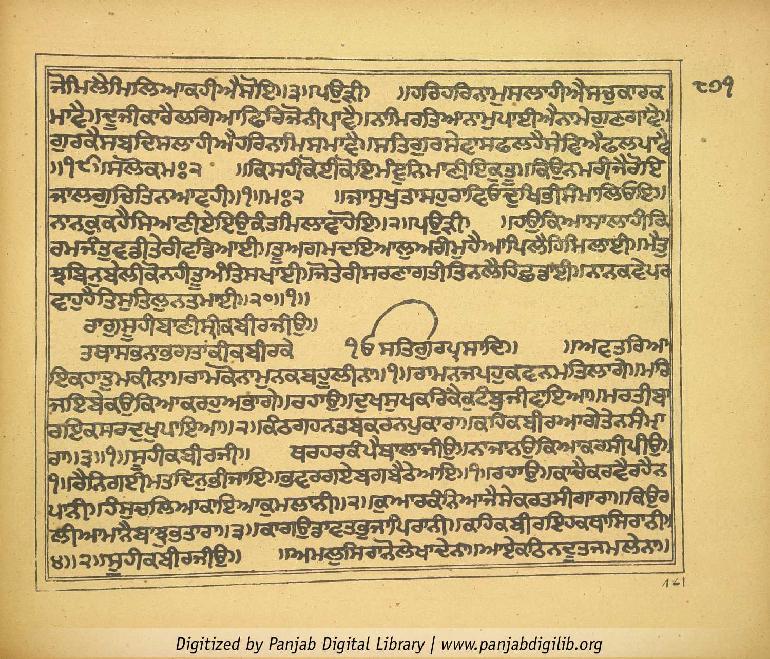 ਜੇਮਿਲੈਮਿਲਿਆਕਹੀਐਸੋਇ॥੩॥ਪਉੜੀ ॥ਹਰਿਹਰਿਨਾਮੁਸਲਾਹੀਐਸਚੁਕਾਰਕ
ਮਾਵੈ॥ਦੂਜੀਕਾਰੈਲਗਿਆਫਿਰਿਜੋਨੀਪਾਵੈ॥ਨਾਮਿਰਤਿਆਨਾਮੁਪਾਈਐਨਾਮੇਗੁਣਗਾਵੈ॥
ਗੁਰਕੈਸਬਦਿਸਲਾਹੀਐਹਰਿਨਾਮਿਸਮਾਵੈ॥ਸਤਿਗੁਰਸੇਵਾਸਫਲਹੈਸੇਵਿਐਫਲਪਾਵੈ
॥੧੯॥ਸਲੋਕਮਃ੨ ॥ਕਿਸਹੀਕੋਈਕੋਇਮੰਞੁਨਿਮਾਣੀਇਕੁਤੂ॥ਕਿਉਨਮਰੀਜੈਰੋਇ
ਜਾਲਗੁਚਿਤਿਨਆਵਹੀ॥੧॥ਮਃ੨ ॥ਜਾਂਸੁਖੁਤਾਸਹੁਰਾਵਿਓਦੁਖਿਭੀਸੰਮ੍ਹਾਲਿਓਇ॥
ਨਾਨਕੁਕਹੈਸਿਆਣੀਏਇਉਕੰਤਮਿਲਾਵਾਹੋਇ॥੨॥ਪਉੜੀ ॥ਹਉਕਿਆਸਾਲਾਹੀਕਿ
ਰਮਜੰਤੁਵਡੀਤੇਰੀਵਡਿਆਈ॥ਤੂਅਗਮਦਇਆਲੁਅਗੰਮੁਹੈਆਪਿਲੈਹਿਮਿਲਾਈ॥ਮੈਤੁ
ਝਬਿਨੁਬੇਲੀਕੋਨਹੀਤੂਅੰਤਿਸਖਾਈ॥ਜੋਤੇਰੀਸਰਣਾਗਤੀਤਿਨਲੈਹਿਛਡਾਈ॥ਨਾਨਕਵੇਪਰ
ਵਾਹੁਹੈਤਿਸੁਤਿਲੁਨਤਮਾਈ॥੨੦॥੧॥
ਰਾਗੁਸੂਹੀਬਾਣੀਸ੍ਰੀਕਬੀਰਜੀਉ॥
ਤਥਾਸਭਨਾਭਗਤਾਂਕੀਕਬੀਰਕੇ ੧ੳ ਸਤਿਗੁਰਪ੍ਰਸਾਦਿ॥ ॥ਅਵਤਰਿਆ
ਇਕਹਾਤੁਮਕੀਨਾ॥ਰਾਮਕੋਨਾਮੁਨਕਬਹੂਲੀਨਾ॥੧॥ਰਾਮਨਜਪਹੁਕਵਨਮਤਿਲਾਗੇ॥ਮਰਿ
ਜਇਬੇਕਉਕਿਆਕਰਹੁਅਭਾਗੇ॥ਰਹਾਉ॥ਦੁਖਸੁਖਕਰਿਕੈਕੁਟੰਬੁਜੀਵਾਇਆ॥ਮਰਤੀਬਾ
ਰਇਕਸਰਦੁਖੁਪਾਇਆ॥੨॥ਕੰਠਗਹਨਤਬਕਰਨਪੁਕਾਰਾ॥ਕਹਿਕਬੀਰਆਗੇਤੇਨਸੰਮਾ
ਰਾ॥੩॥੧॥ਸੂਹੀਕਬੀਰਜੀ॥ ਥਰਹਰਕੰਪੈਬਾਲਾਜੀਉ॥ਨਾਜਾਨਉਕਿਆਕਰਸੀਪੀਉ॥
੧॥ਰੈਨਿਗਈਮਤਦਿਨੁਭੀਜਾਇ॥ਭਵਰਗਏਬਗਬੈਠੇਆਇ॥੧॥ਰਹਾਉ॥ਕਾਚੈਕਰਵੈਰਹੈਨ
ਪਾਨੀ॥ਹੰਸੁਚਲਿਆਕਾਇਆਕੁਮਲਾਨੀ॥੨॥ਕੁਆਰਕੰਨਿਆਜੈਸੇਕਰਤਸੀਗਾਰਾ॥ਕਿਉਰ
ਲੀਆਮਾਨੈਬਾਝੁਭਤਾਰਾ॥੩॥ਕਾਗਉਡਾਵਤਭੁਜਾਪਿਰਾਨੀ॥ਕਹਿਕਬੀਰਇਹਕਥਾਸਿਰਾਨੀ॥
੪॥੨॥ਸੂਹੀਕਬੀਰਜੀਉ॥ ॥ਅਮਲੁਸਿਰਾਨੋਲੇਖਾਦੇਨਾ॥ਆਏਕਠਿਨਦੂਤਜਮਲੇਨਾ॥
Digitized by Panjab Digital Library | www.panjabdigilib.org